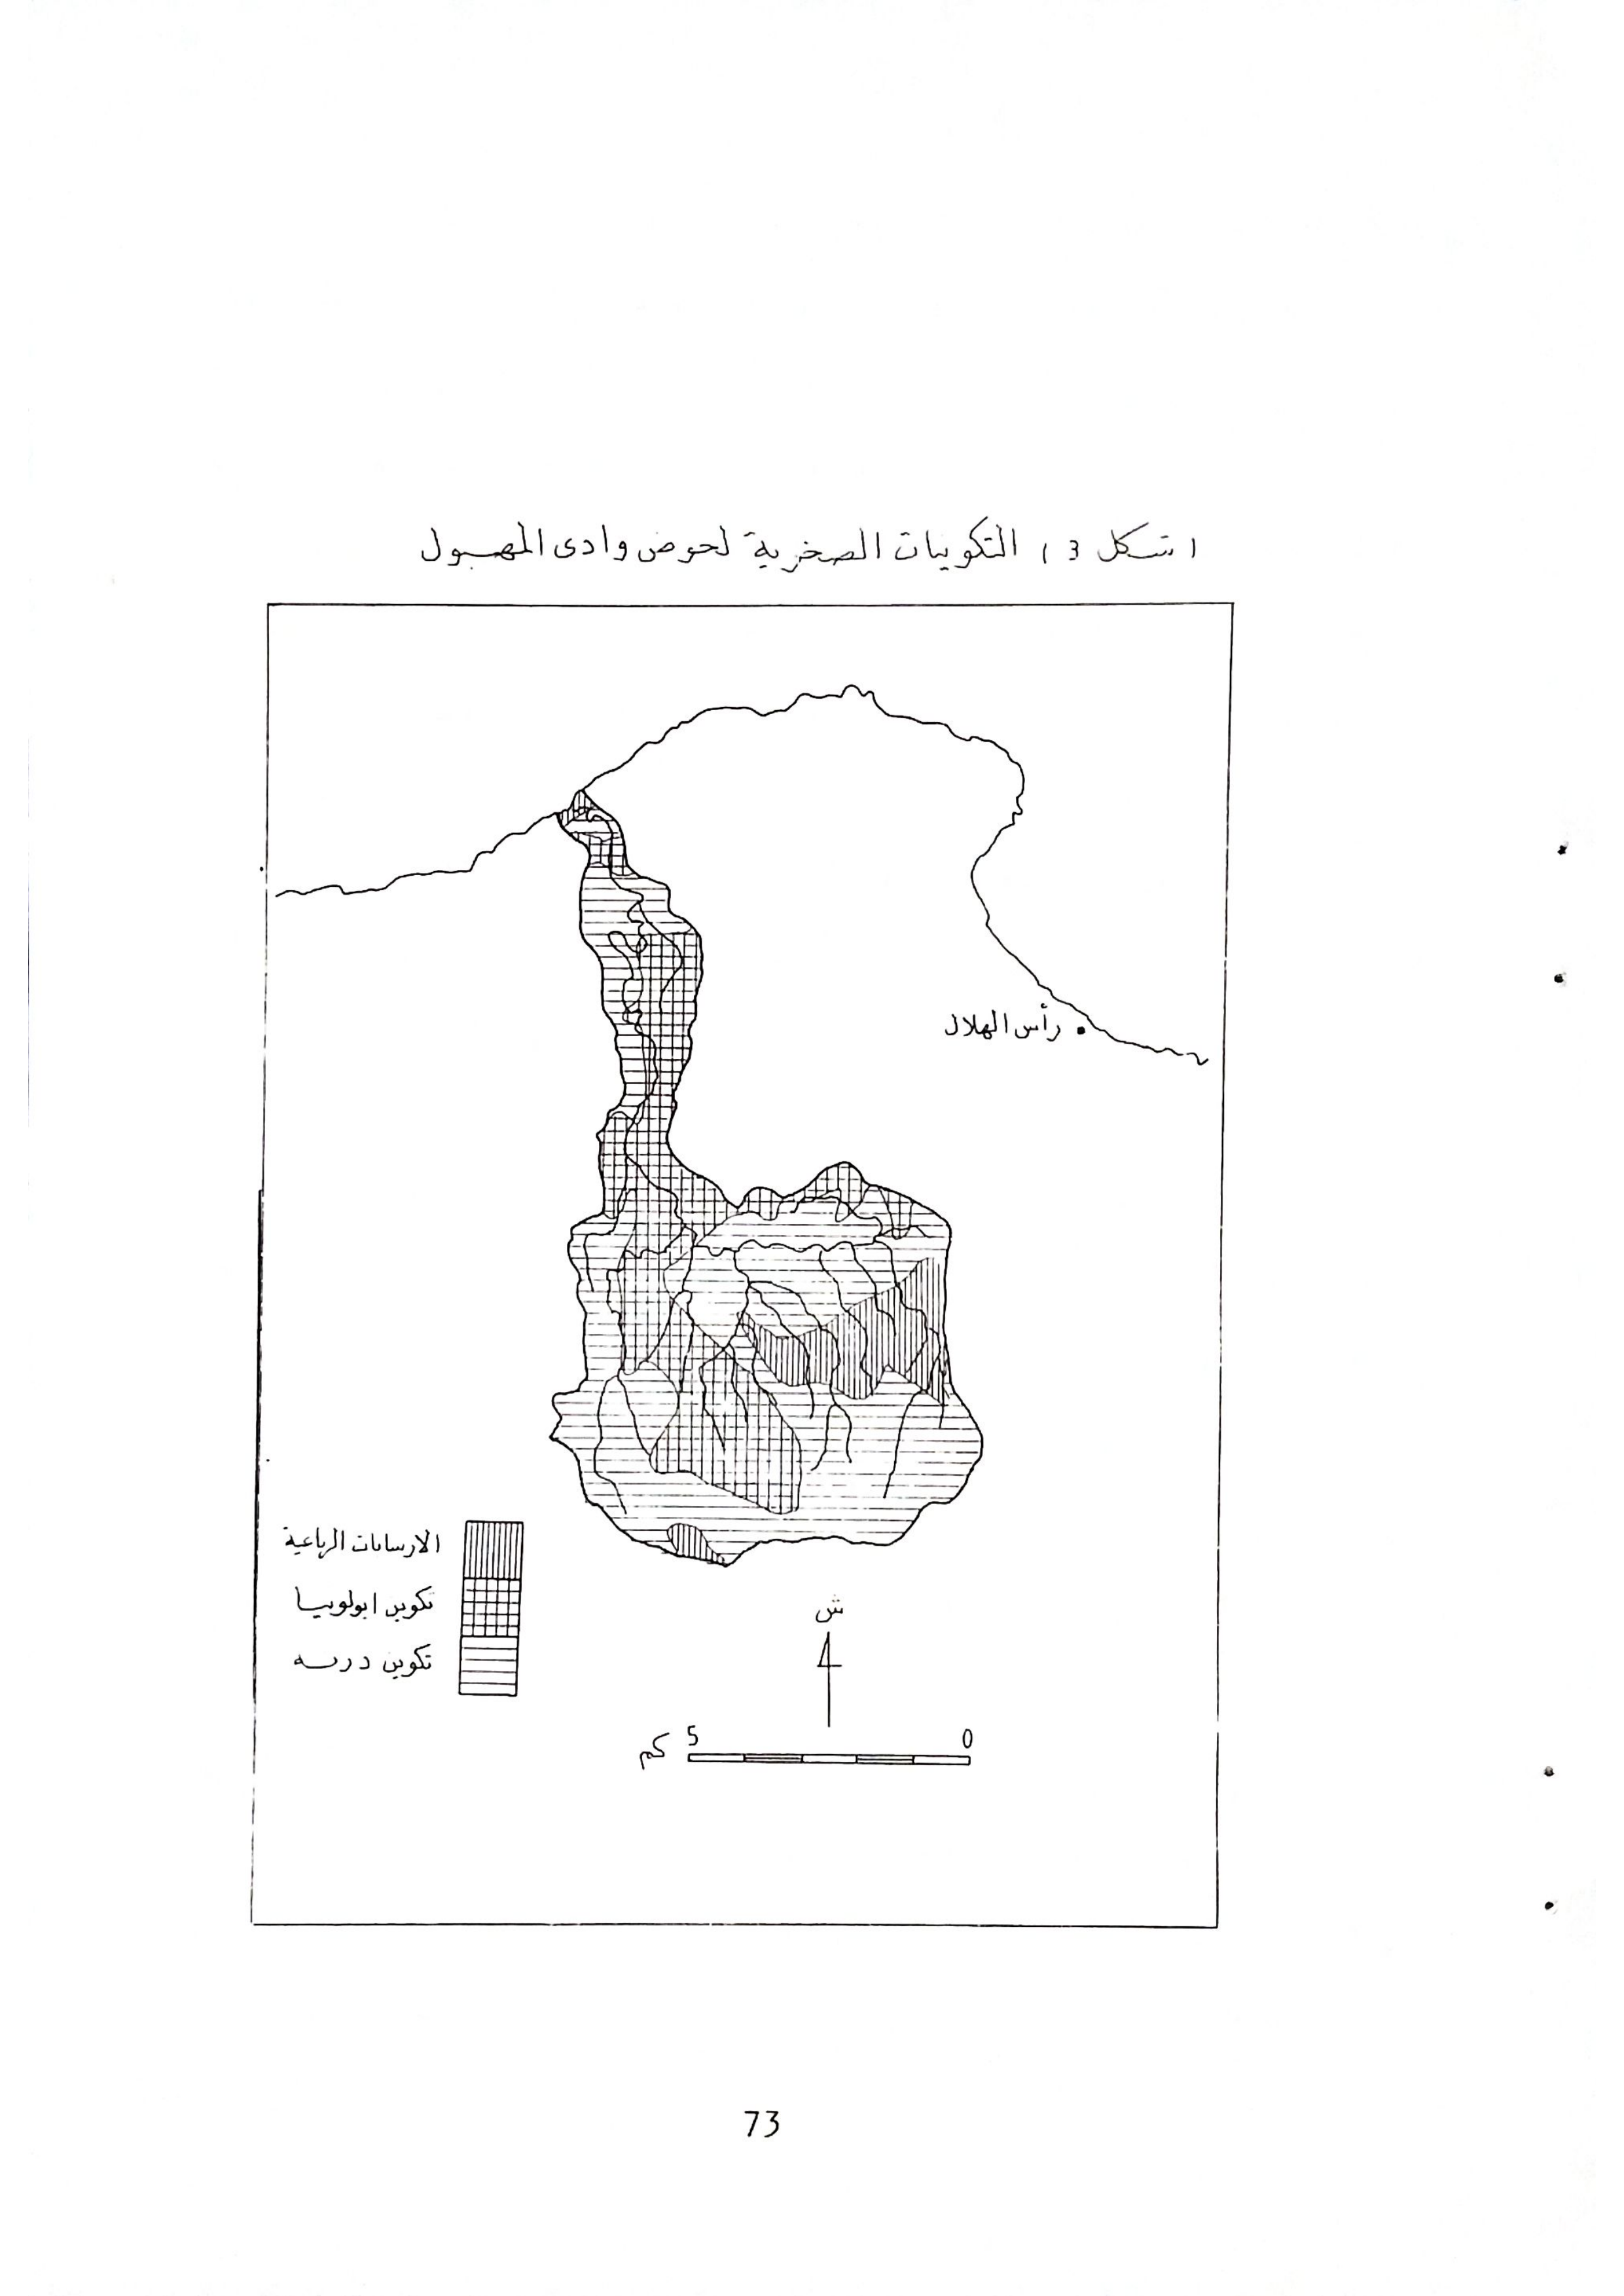 ( شكل 3 ) التكوينات الصخرية لحوض وادى المهبول
رأس الهلال
الارسابات الرباعية
تكوين ابولونيا
تكوين درنه
ش
5 0
كم
73